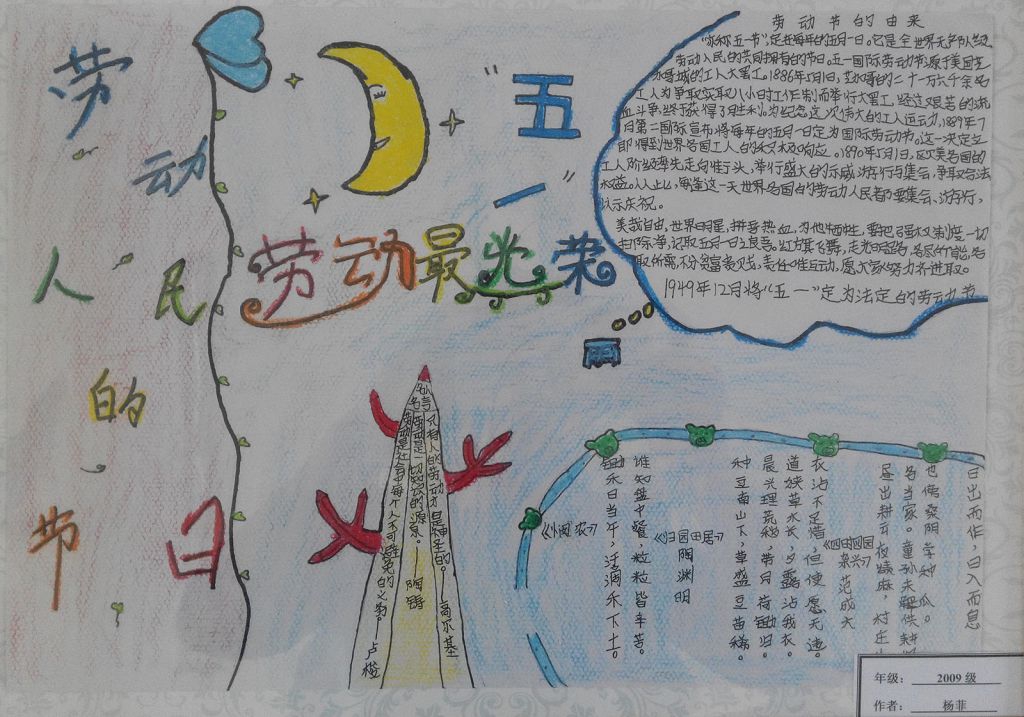 劳
动
人民
的
节
日
“五一”
劳动最光荣
劳动节的由来
亦称五一节”,定在每年的五月一日。它是全世界无产阶级
劳动人民的共同拥有的节日。五一国际劳动节源于美国芝
加哥城的工人大罢工。1886年5月1日,芝加哥的二十一万六千余名
工人为争取实取八小时工作制而举行大罢工,经过艰苦的流
血斗争,终于获得了胜利。为纪念这次伟大的工人运动,1889年7
月第二国际宣布将每年的五月一日定为国际劳动节。这一决定立
即得到世界各国工人的积极响应。1890年5月1日,欧美各国的
工人阶级率先走向街头,举行盛大的示威游行与集会,争取合法
权益。从此,每逢这一天世界各国的劳动人民都要集会、游行,
以示庆祝。
美哉自由,世界明星,拼吾热血,为他牺牲,要把强权制度一切
扫除净,记取五月一日之良善。红旗飞舞,走光明路,各尽所能,各
取所需,不分贫富贵贱,责任唯互动,愿大家努力齐进取。
1949年12月将“五一”定为法定的劳动节
名言
只有人的劳动才是神圣的。——高尔基
劳动是一切知识的源泉。——陶铸
劳动是社会中每个人不可避免的义务。——卢梭
《悯农》
锄禾日当午,汗滴禾下土。
谁知盘中餐,粒粒皆辛苦。
《归园田居》
陶渊明
种豆南山下,草盛豆苗稀。
晨兴理荒秽,带月荷锄归。
道狭草木长,夕露沾我衣。
衣沾不足惜,但使愿无违。
《四时田园
杂兴》 范成大
昼出耕田夜绩麻,村庄
各当家。童孙未解供耕
也傍桑阴学种瓜。
日出而作,日入而息
年级: 2009级
作者: 杨菲